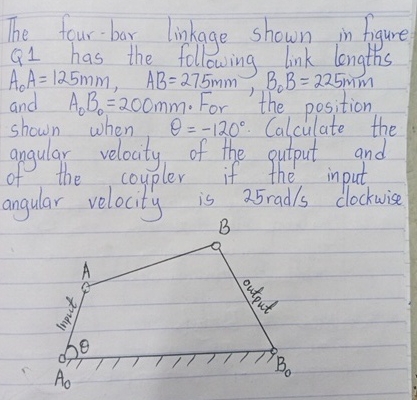 The four-bar linkage shown in figure
Q1 has the following link lengths
A₀A = 125mm, AB = 275mm, B₀B = 225mm
and A₀B₀ = 200mm. For the position
shown when θ = -120°. Calculate the
angular velocity of the output and
of the coupler if the input
angular velocity is 25rad/s clockwise
B
A
Input
output
θ
A₀
B₀